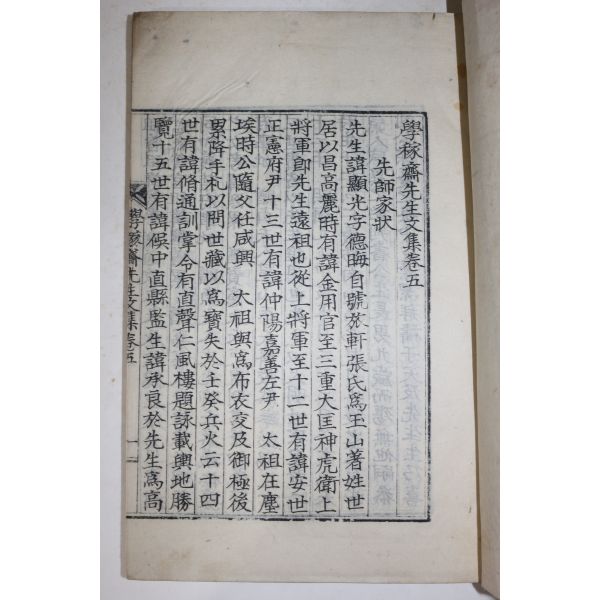 學稼齋先生文集卷五
先師家狀
先生諱顯光字德晦自號旅軒張氏爲玉山著姓世
居以昌高麗時有諱金用官至三重大匡神虎衛上
將軍卽先生遠祖也從上將軍至十二世有諱安世
正憲府尹十三世有諱仲陽嘉善左尹 太祖在塵
埃時公隨父任咸興 太祖與爲布衣交及御極後
累降手札以問世藏以爲寶失於壬癸兵火云十四
世有諱脩通訓掌令有直聲仁風樓題詠載輿地勝
覽十五世有諱俁中直縣監生諱承良於先生爲高
學稼齋先生文集卷五 一